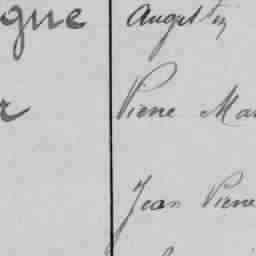 gue Augustin
r Pierre Mar
Jean Pierre